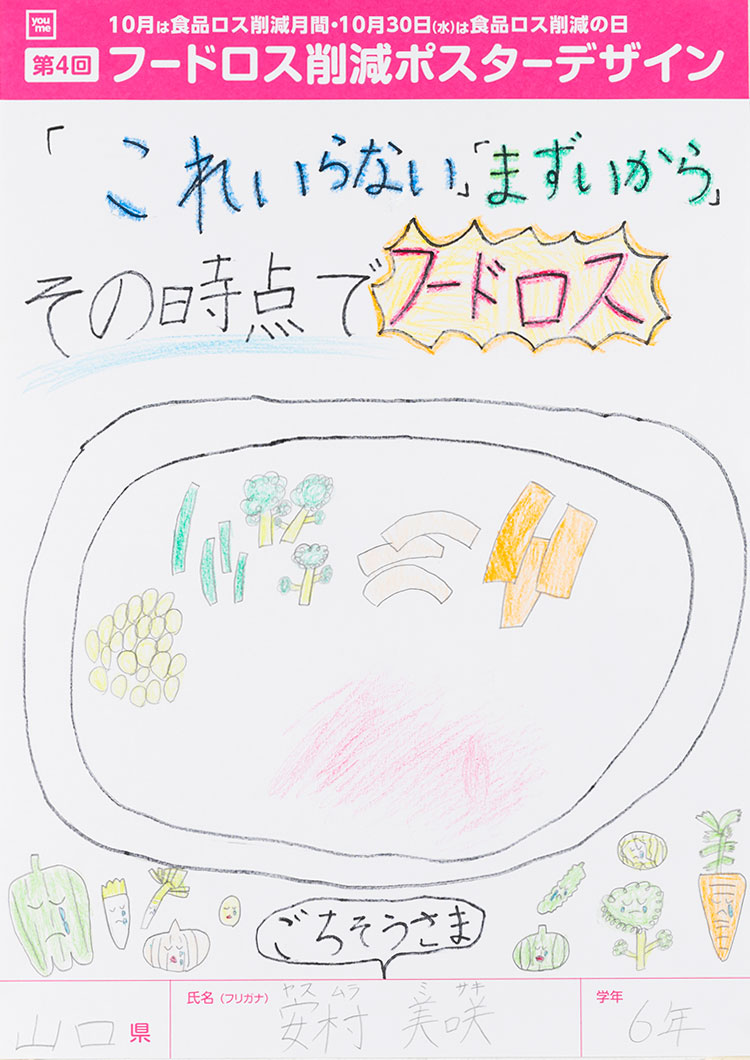 you me
10月は食品ロス削減月間・10月30日(水)は食品ロス削減の日
第4回 フードロス削減ポスターデザイン
「これいらない」「まずいから」
その時点でフードロス
ごちそうさま
山口県 氏名(フリガナ) ヤスムラ ミサキ 安村 美咲 学年 6年